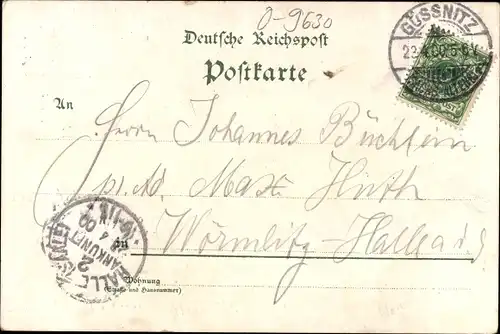 O-9630
Deutsche Reichspost
Postkarte
GÖSSNITZ
23.4.00. 5-6N.
An
Herrn Johannes Büchlein
pr. Ad. Max Huth
in Wörmlitz-Halle a/S
HALLE
(SAALE)
ANKUNFT
4 00
Wohnung
(Straße und Hausnummer)